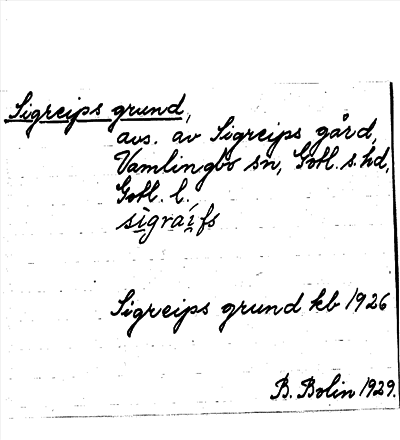 Sigreips grund,
avs. av Sigreips gård,
Vamlingbo sn, Gotl. s. hd,
Gotl. l.
sigraifs
Sigreips grund kb 1926
B. Bolin 1929.